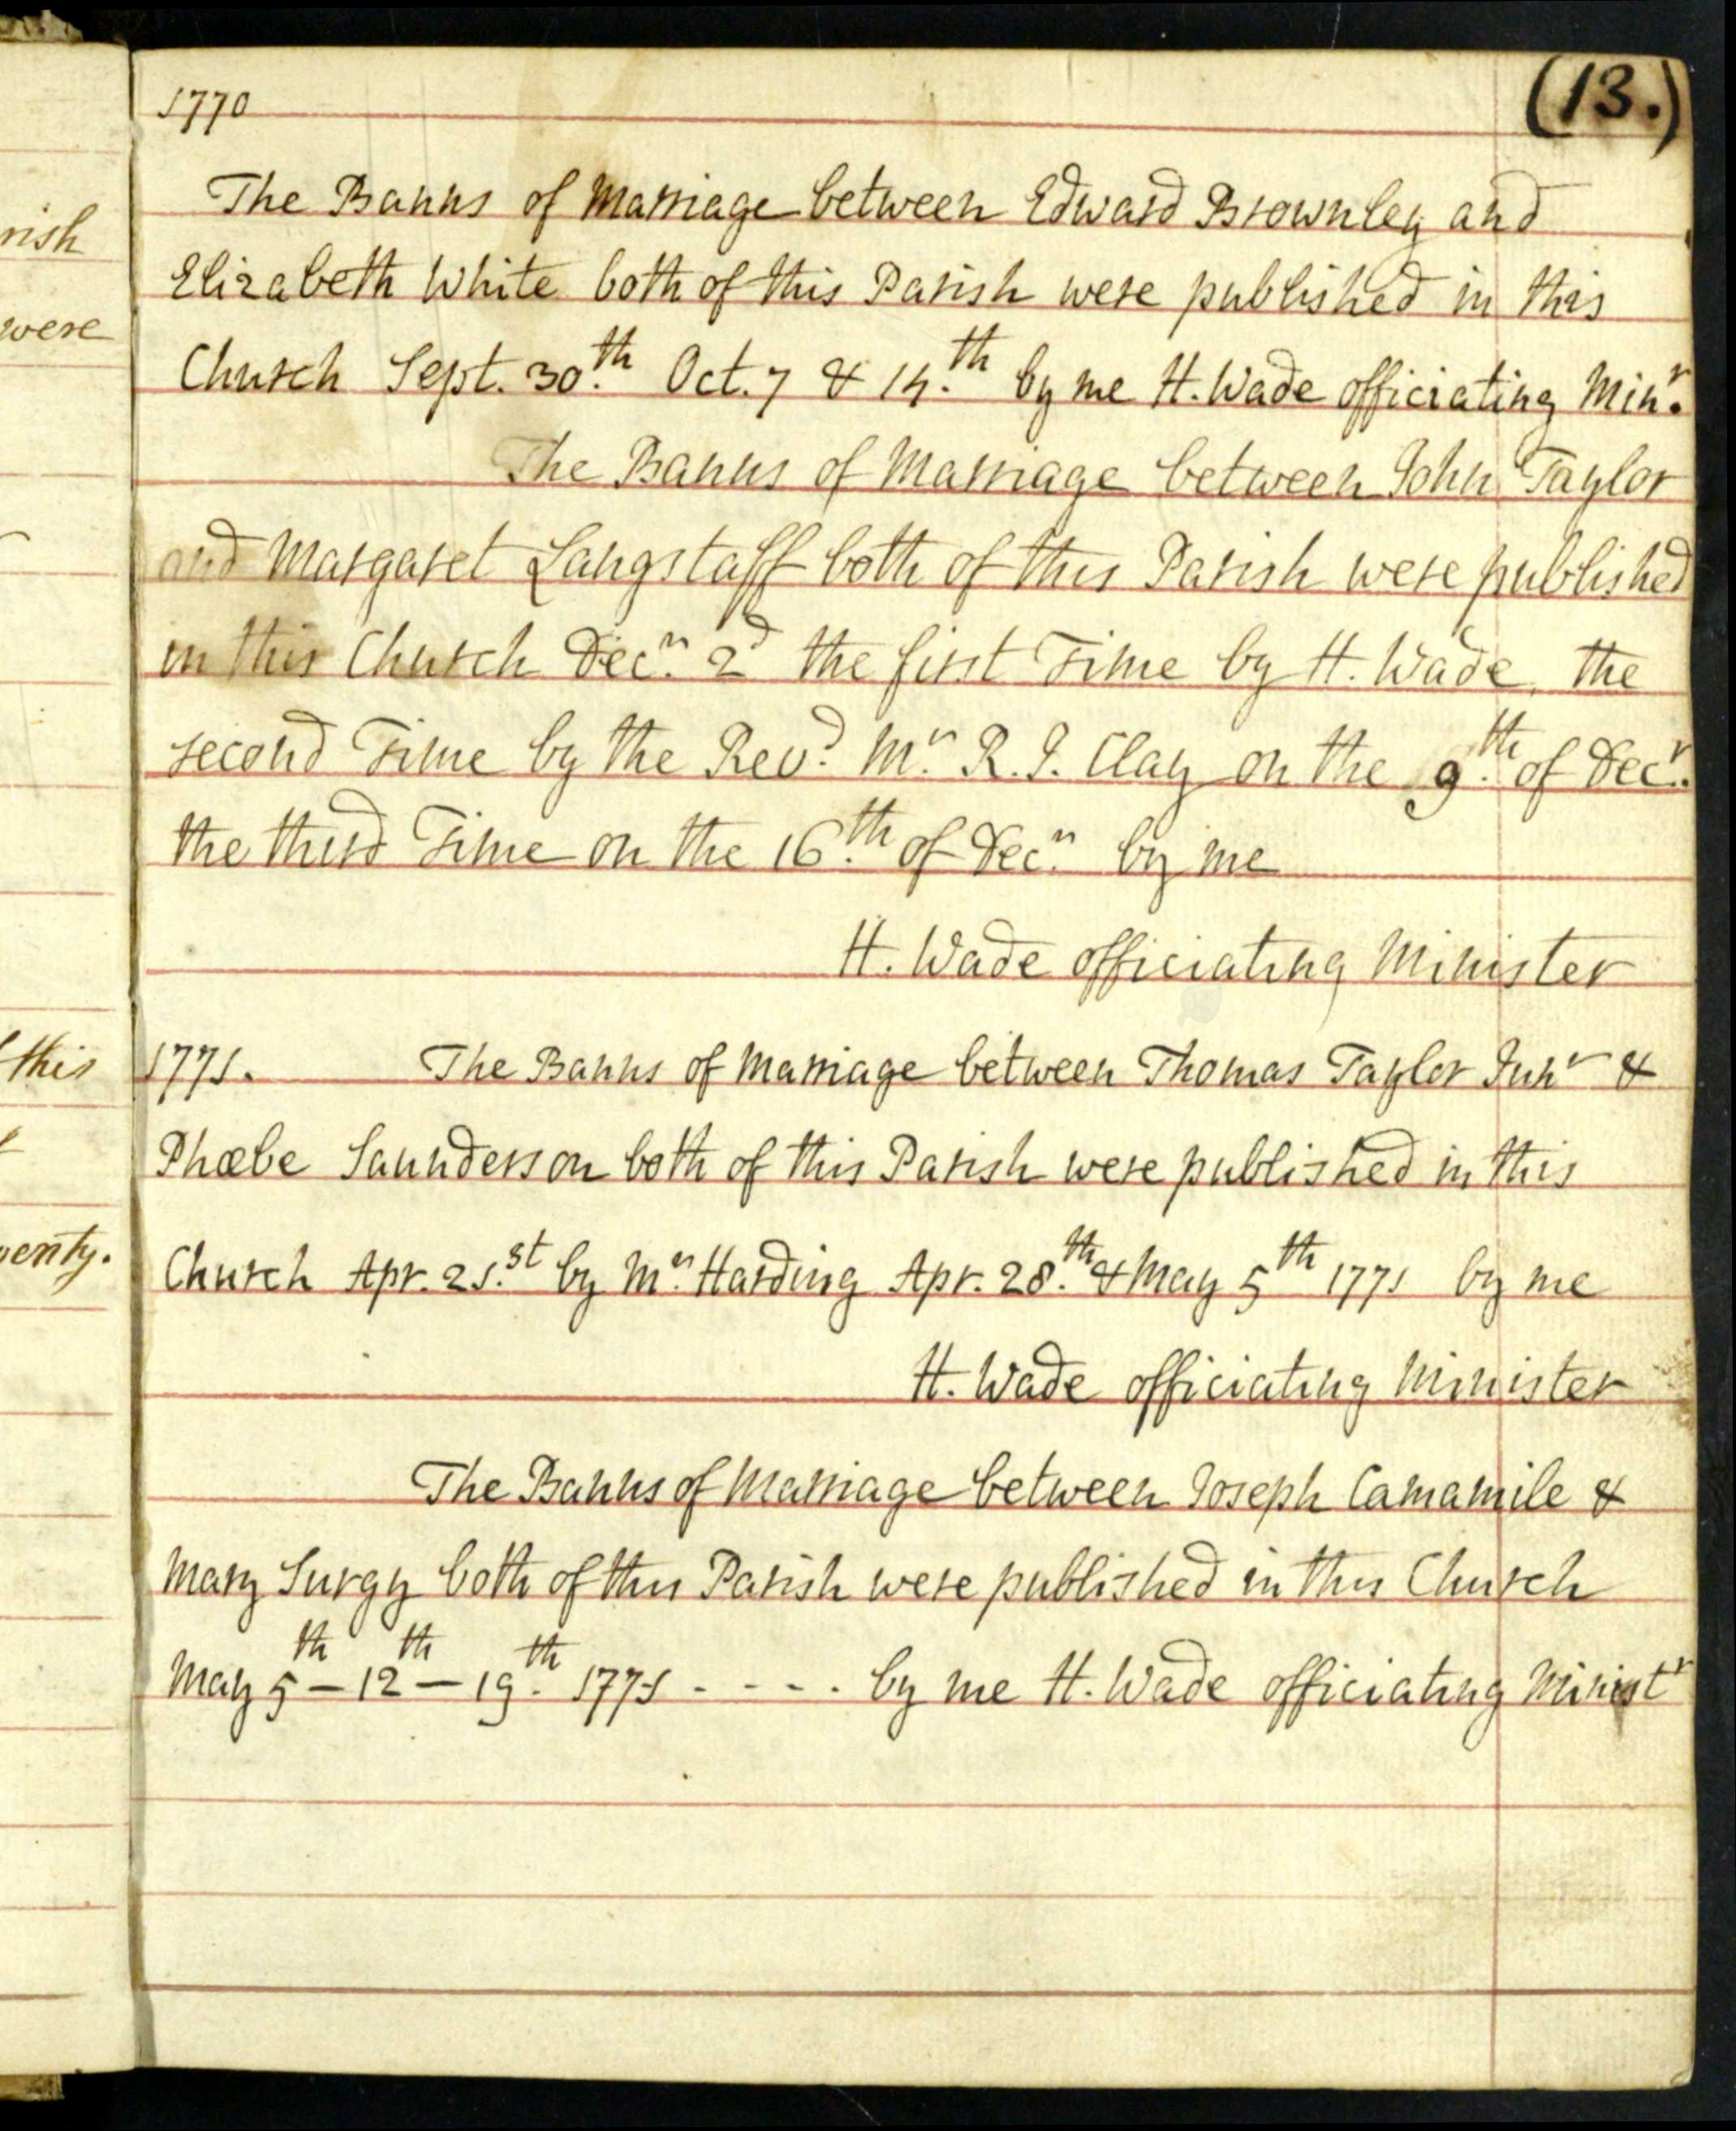 rish
were
this
venty.
(13.)
1770
The Banns of Marriage between Edward Brownley and
Elizabeth White both of this Parish were published in this
Church Sept. 30.th Oct. 7 & 14.th by me H. Wade officiating Min.r
The Banns of Marriage between John Taylor
and Margaret Langstaff both of this Parish were published
in this Church Dec.r 2d the first Time by H. Wade, the
second Time by the Rev.d M.r R. J. Clay on the 9.th of Dec.r
the third Time on the 16.th of Dec.r by me
H. Wade officiating Minister
1771. The Banns of Marriage between Thomas Taylor Junr &
Phœbe Saunderson both of this Parish were published in this
Church Apr. 21.st by M.r Harding Apr. 28.th & May 5th 1771 by me
H. Wade officiating Minister
The Banns of Marriage between Joseph Camamile &
Mary Surgy both of this Parish were published in this Church
May 5th – 12th – 19.th 1771 - - - - by me H. Wade officiating Ministr